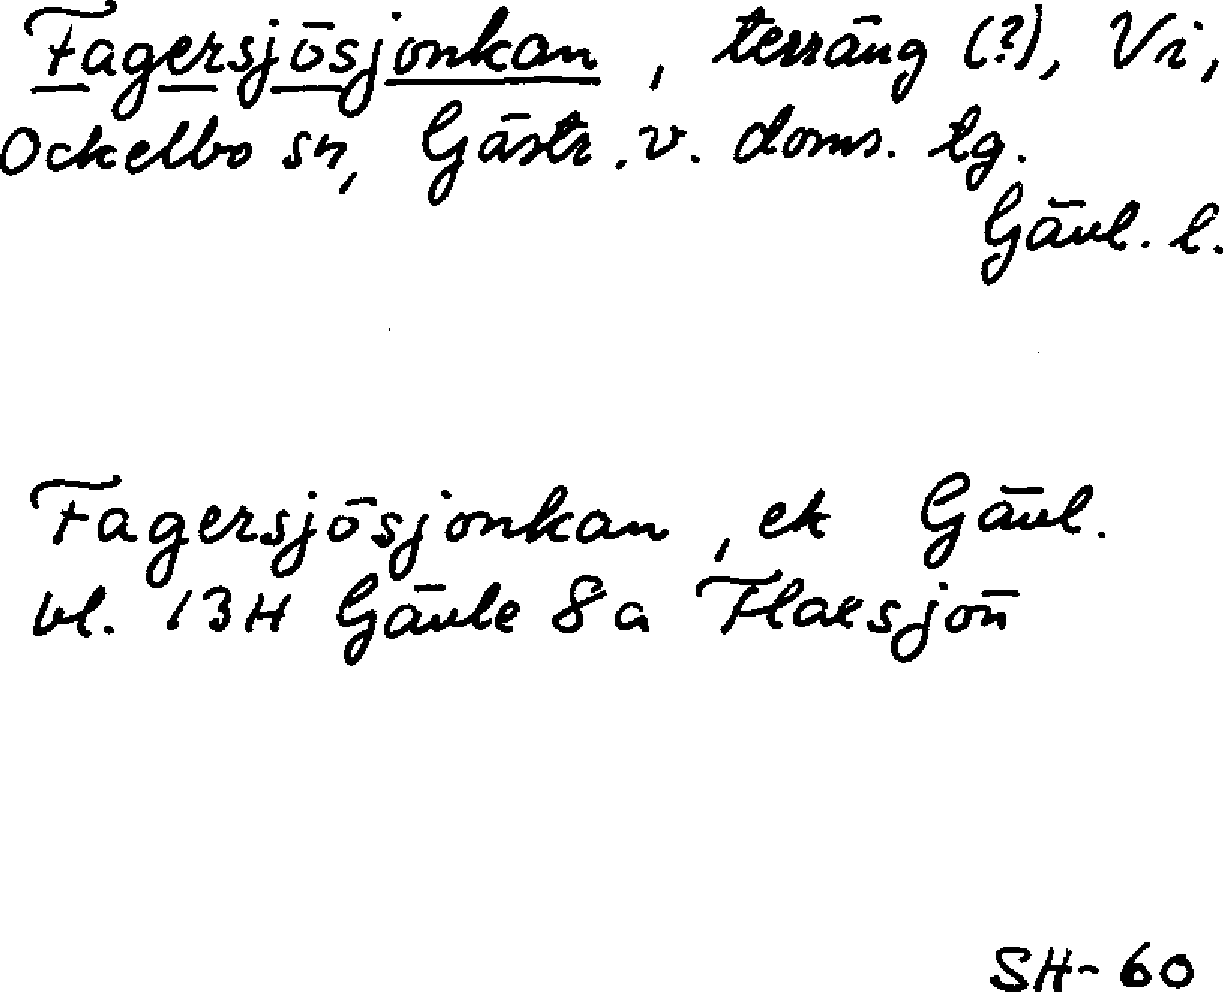 Fagersjösjonkan, terräng (?), Vi,
Ockelbo sn, Gästr. v. doms. tg.
Gävl. l.
Fagersjösjonkan, ek Gävl.
bl. 13H Gävle 8a Flaesjön
SH-60